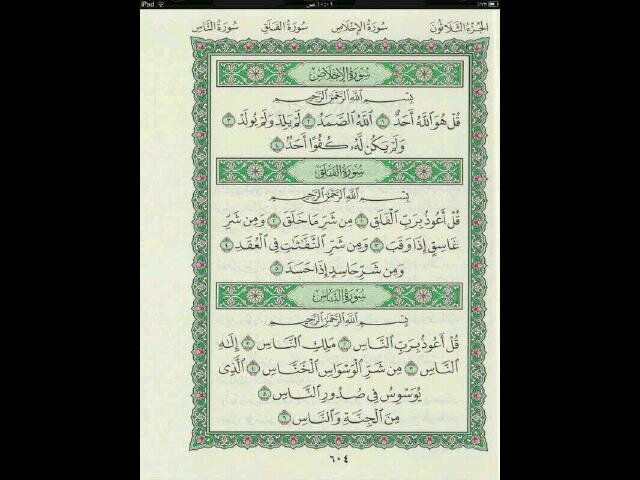 iPad ١٠:٠٩ ص ٪٧٣
الجُزْءُ الثَّلَاثُونَ سُورَةُ الإِخْلَاصِ سُورَةُ الفَلَقِ سُورَةُ النَّاسِ
سُورَةُ الإِخْلَاصِ
بِسْمِ ٱللَّهِ ٱلرَّحْمَٰنِ ٱلرَّحِيمِ
قُلْ هُوَ ٱللَّهُ أَحَدٌ ١ ٱللَّهُ ٱلصَّمَدُ ٢ لَمْ يَلِدْ وَلَمْ يُولَدْ ٣
وَلَمْ يَكُن لَّهُۥ كُفُوًا أَحَدٌۢ ٤
سُورَةُ الفَلَقِ
بِسْمِ ٱللَّهِ ٱلرَّحْمَٰنِ ٱلرَّحِيمِ
قُلْ أَعُوذُ بِرَبِّ ٱلْفَلَقِ ١ مِن شَرِّ مَا خَلَقَ ٢ وَمِن شَرِّ
غَاسِقٍ إِذَا وَقَبَ ٣ وَمِن شَرِّ ٱلنَّفَّٰثَٰتِ فِى ٱلْعُقَدِ ٤
وَمِن شَرِّ حَاسِدٍ إِذَا حَسَدَ ٥
سُورَةُ النَّاسِ
بِسْمِ ٱللَّهِ ٱلرَّحْمَٰنِ ٱلرَّحِيمِ
قُلْ أَعُوذُ بِرَبِّ ٱلنَّاسِ ١ مَلِكِ ٱلنَّاسِ ٢ إِلَٰهِ
ٱلنَّاسِ ٣ مِن شَرِّ ٱلْوَسْوَاسِ ٱلْخَنَّاسِ ٤ ٱلَّذِى
يُوَسْوِسُ فِى صُدُورِ ٱلنَّاسِ ٥
مِنَ ٱلْجِنَّةِ وَٱلنَّاسِ ٦
٦٠٤